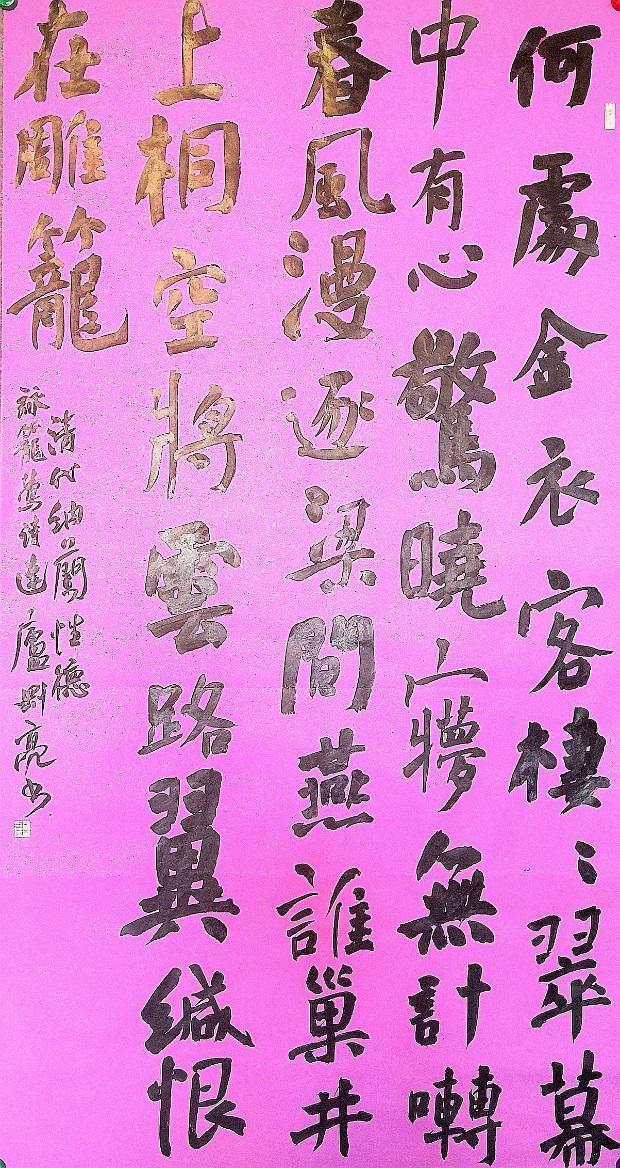 何處金衣客棲〻翠幕
中有心驚曉㝱無計囀
春風漫逐梁間燕誰巢井
上桐空將雲路翼緘恨
在雕籠
清代納蘭性德
詠籠鶯詩 廬 亮书